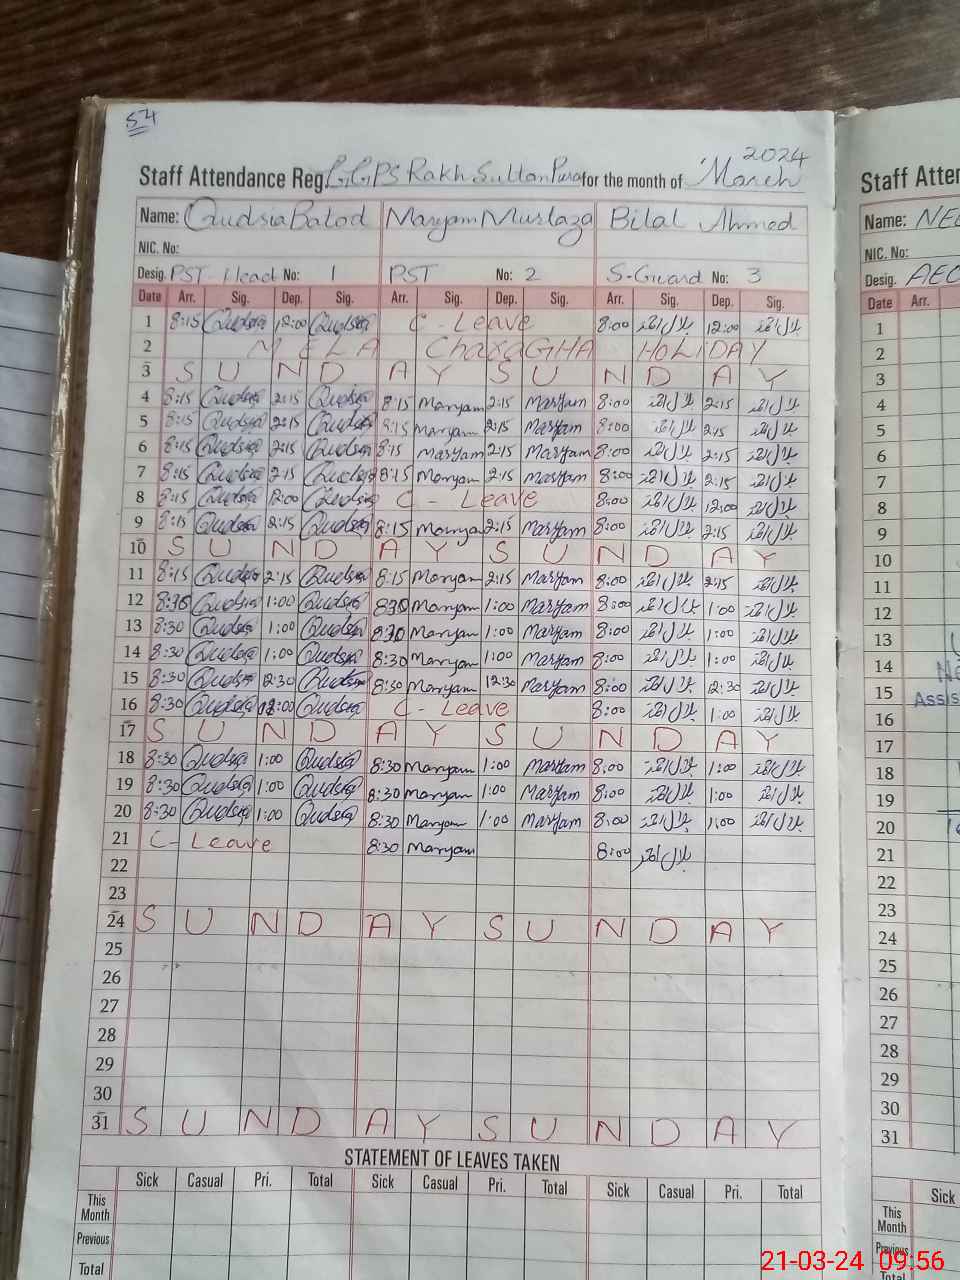 54
2024
Staff Attendance Reg. GGPS Rakh Sultan Pura for the month of March
Name: Qudsia Batool Maryam Murtaza Bilal Ahmed
NIC. No:
Desig. PST-Head No: 1 PST No: 2 S-Guard No: 3
Date Arr. Sig. Dep. Sig. Arr. Sig. Dep. Sig. Arr. Sig. Dep. Sig.
1 8:15 Qudsia 12:00 Qudsia C-Leave 8:00 بلال احمد 12:00 بلال احمد
2 MELA CharaGHA HOLiDAY
3 SUNDAY SUNDAY
4 8:15 Qudsia 2:15 Qudsia 8:15 Maryam 2:15 Maryam 8:00 بلال احمد 2:15 بلال احمد
5 8:15 Qudsia 2:15 Qudsia 8:15 Maryam 2:15 Maryam 8:00 بلال احمد 2:15 بلال احمد
6 8:15 Qudsia 2:15 Qudsia 8:15 Maryam 2:15 Maryam 8:00 بلال احمد 2:15 بلال احمد
7 8:15 Qudsia 2:15 Qudsia 8:15 Maryam 2:15 Maryam 8:00 بلال احمد 2:15 بلال احمد
8 8:15 Qudsia 12:00 Qudsia C-Leave 8:00 بلال احمد 12:00 بلال احمد
9 8:15 Qudsia 2:15 Qudsia 8:15 Maryam 2:15 Maryam 8:00 بلال احمد 2:15 بلال احمد
10 SUNDAY SUNDAY
11 8:15 Qudsia 2:15 Qudsia 8:15 Maryam 2:15 Maryam 8:00 بلال احمد 2:15 بلال احمد
12 8:30 Qudsia 1:00 Qudsia 830 Maryam 1:00 Maryam 8:00 بلال احمد 1:00 بلال احمد
13 8:30 Qudsia 1:00 Qudsia 8:30 Maryam 1:00 Maryam 8:00 بلال احمد 1:00 بلال احمد
14 8:30 Qudsia 1:00 Qudsia 8:30 Maryam 1:00 Maryam 8:00 بلال احمد 1:00 بلال احمد
15 8:30 Qudsia 12:30 Qudsia 8:30 Maryam 12:30 Maryam 8:00 بلال احمد 12:30 بلال احمد
16 8:30 Qudsia 12:00 Qudsia C-Leave 8:00 بلال احمد 1:00 بلال احمد
17 SUNDAY SUNDAY
18 8:30 Qudsia 1:00 Qudsia 8:30 Maryam 1:00 Maryam 8:00 بلال احمد 1:00 بلال احمد
19 8:30 Qudsia 1:00 Qudsia 8:30 Maryam 1:00 Maryam 8:00 بلال احمد 1:00 بلال احمد
20 8:30 Qudsia 1:00 Qudsia 8:30 Maryam 1:00 Maryam 8:00 بلال احمد 1:00 بلال احمد
21 C-Leave 8:30 Maryam 8:00 بلال احمد
22
23
24 SUNDAY SUNDAY
25
26
27
28
29
30
31 SUNDAY SUNDAY
STATEMENT OF LEAVES TAKEN
Sick Casual Pri. Total Sick Casual Pri. Total Sick Casual Pri. Total
This Month
Previous
Total
Staff Atte
Name:
NIC. No:
Desig. AEO
Date Arr.
1
2
3
4
5
6
7
8
9
10
11
12
13
14
15 Assis
16
17
18
19
20
21
22
23
24
25
26
27
28
29
30
31
Sick
This Month
Previous
Total
21-03-24 09:56